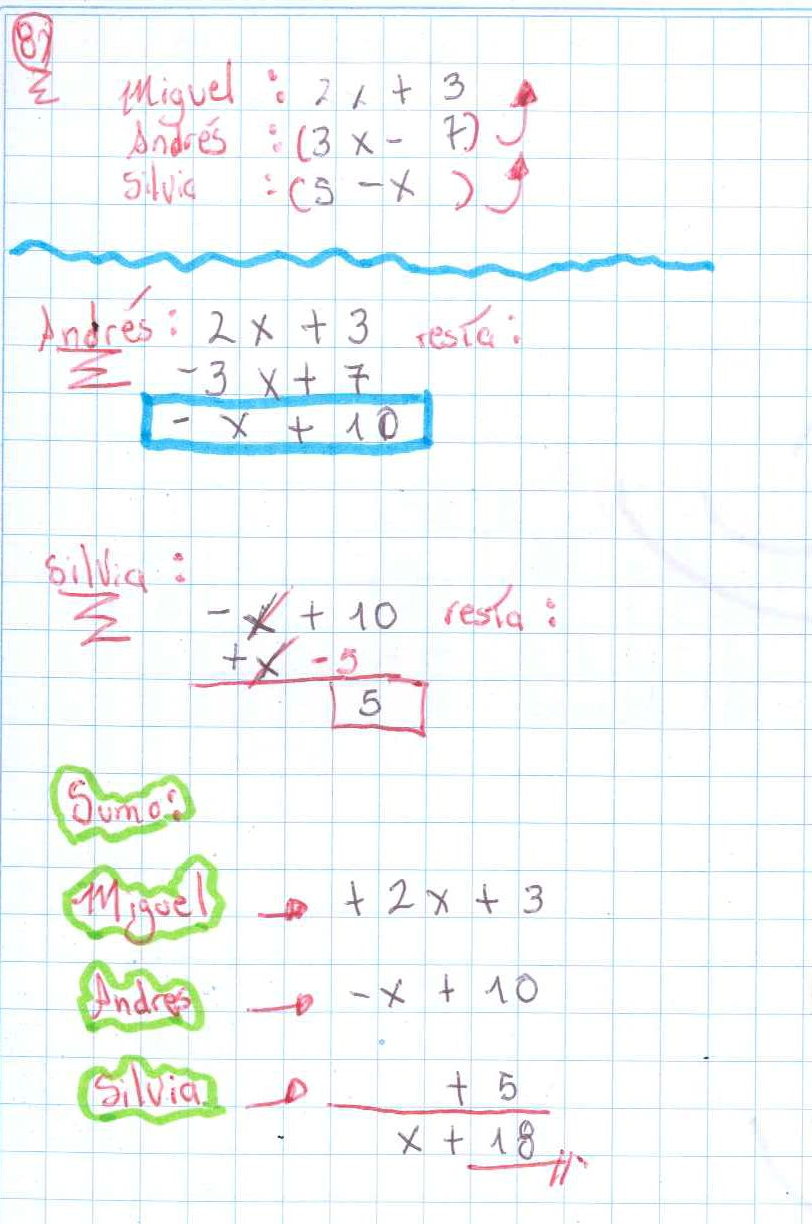 8)
Miguel : 2x + 3
Andrés : (3x - 7)
Silvia : (5 - x )
Andrés: 2x + 3 resta:
-3x + 7
- x + 10
Silvia :
- x + 10 resta :
+ x - 5
5
Suma:
Miguel → + 2x + 3
Andres → - x + 10
Silvia → + 5
x + 18